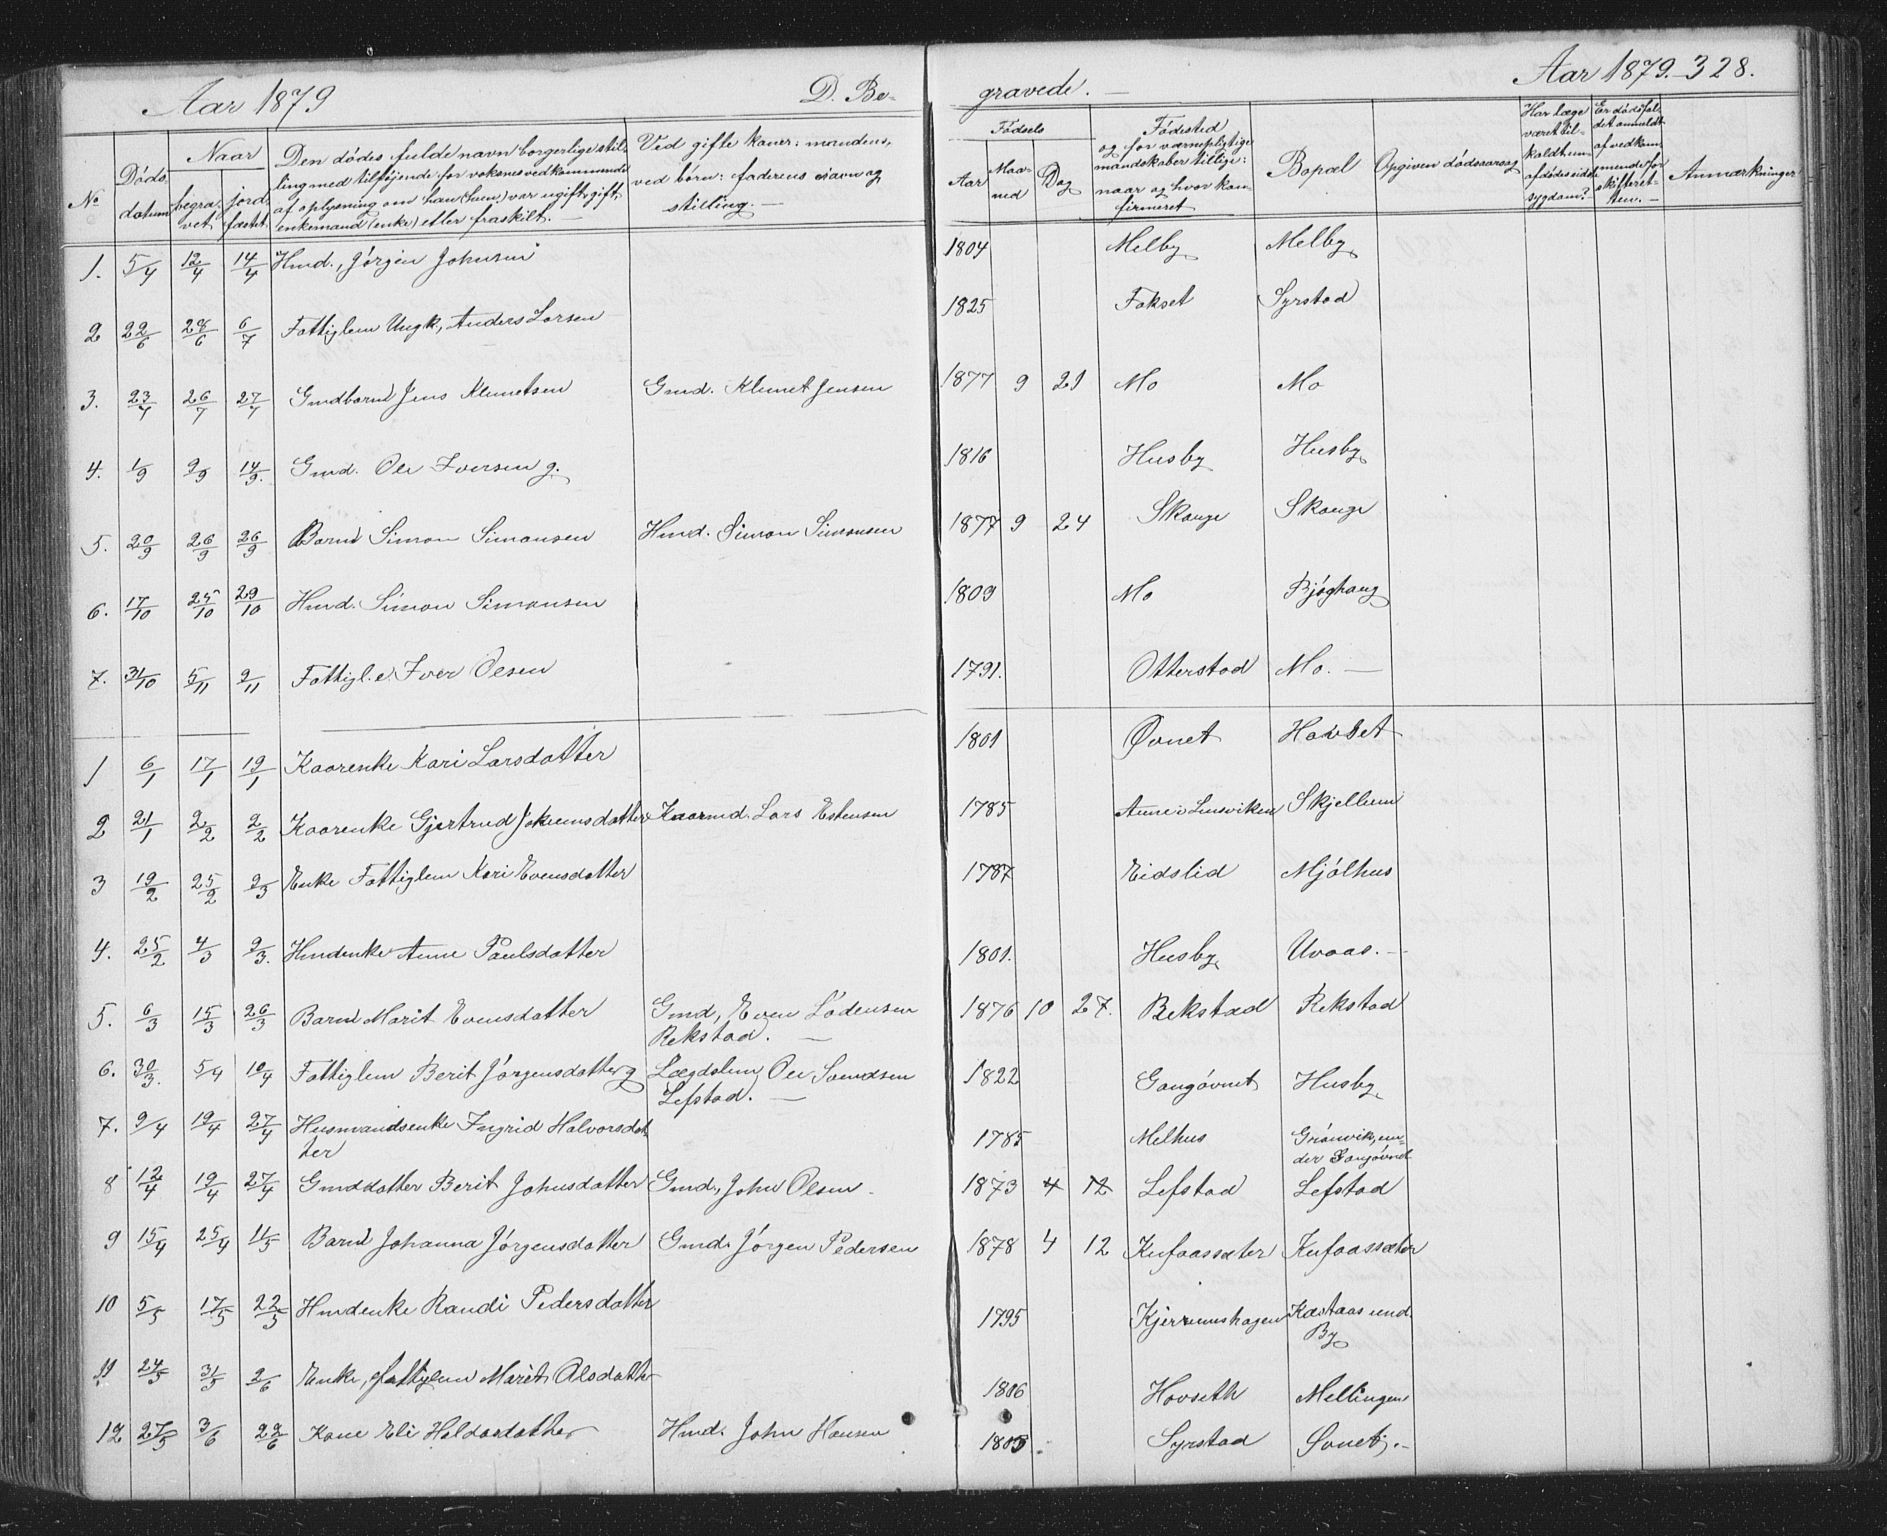 Aar 1879 D. Be- gravede. — Aar 1879. — 328.
No | Døds datum | Naar begra- vet | jord- fæstet | Den dødes fulde navn borgerlige stil- ling med tilføjende for voksnes vedkommende af oplysning om han (hun) var ugift, gift, enkemand (enke) eller fraskilt. — | Ved gifte koner: mandens, ved børn: faderens navn og stilling. — | Fødsels Aar | Maa- ned | Dag | Fødested og for værnepligtige mandskaber tillige: naar og hvor kon- firmeret | Bopæl | Opgiven dødsaarsag | Har læge været til- kaldt un- afdødes sidste sygdom? | Er dødsfal- det anmeldt af vedkom- mende for skifteret- ten. — | Anmærkninger
1. 5/4 12/4 14/4 Hmd., Jörgen Johnsen 1804 Melby Melby
2 22/6 28/6 6/7 Fattiglem Ungk, Anders Larsen 1825 Fokset Syrstad
3. 23/7 26/7 27/7 Gmdbarn Jens Klemetsen Gmd. Klemet Jensen 1877 9 21 Mo Mo
4. 1/9 9/9 14/9. Gmd. Ole Iversen g. 1816 Husby Husby
5. 20/9 26/9 26/9 Barn Simon Simonsen Hmd. Simon Simonsen 1877 9 24 Skauge Skauge
6. 17/10 25/10 29/10 Hmd. Simon Simonsen 1809 Mo Bjøghaug
7. 31/10 5/11 9/11 Fattigl. e. Iver Olsen 1791. Otterstad Mo. —
1 6/1 17/1 19/1 Kaarenke Kari Larsdatter 1801 Øvnet Hovset
2 21/1 2/2 2/2 Kaarenke Gjertrud Jokumsdatter Kaarmd. Lars Estensen 1785 Aune i Lensviken Skjellum
3 19/2 25/2 9/3 Enke Fattiglem Kari Evensdatter 1787 Eidslid Mjölhus
4. 25/2 4/3 9/3. Hmdenke Anne Paulsdatter 1801. Husby Uvaas. —
5. 6/3 15/3 26/3 Barn Marit Evensdatter Gmd, Even Lodensen
Rekstad. — 1876 10 27. Rekstad Rekstad
6. 30/3. 5/4 10/4 Fattiglem Berit Jörgensdatter g Lægdslem Ole Svendsen
Lefstad. — 1822 Gangövnet Husby
7. 9/4 19/4 27/4 Husmandsenke Ingrid Halvorsdat
ter 1785 Melhus Grönvik, un-
der Gangövnet
8 12/4 19/4 27/4 Gmddatter Berit Johnsdatter Gmd, John Olsen. 1873 4 12 Lefstad Lefstad
9 15/4 25/4 11/5 Barn Johanna Jörgensdatter Gmd. Jörgen Pedersen 1878 4 12 Kufaassæter Kufaassæter
10 5/5 17/5 22/5 Hmdenke Randi Pedersdatter 1795 Kjerremshagen Kastaas und.
By
11 24/5 31/5 2/6 Enke, fattiglem Marit Olsdatter 1806 Hovseth Mellingen
12 27/5 3/6 22/6 Kone Eli Haldosdatter Hmd. John Hansen Syrstad Övnet. —